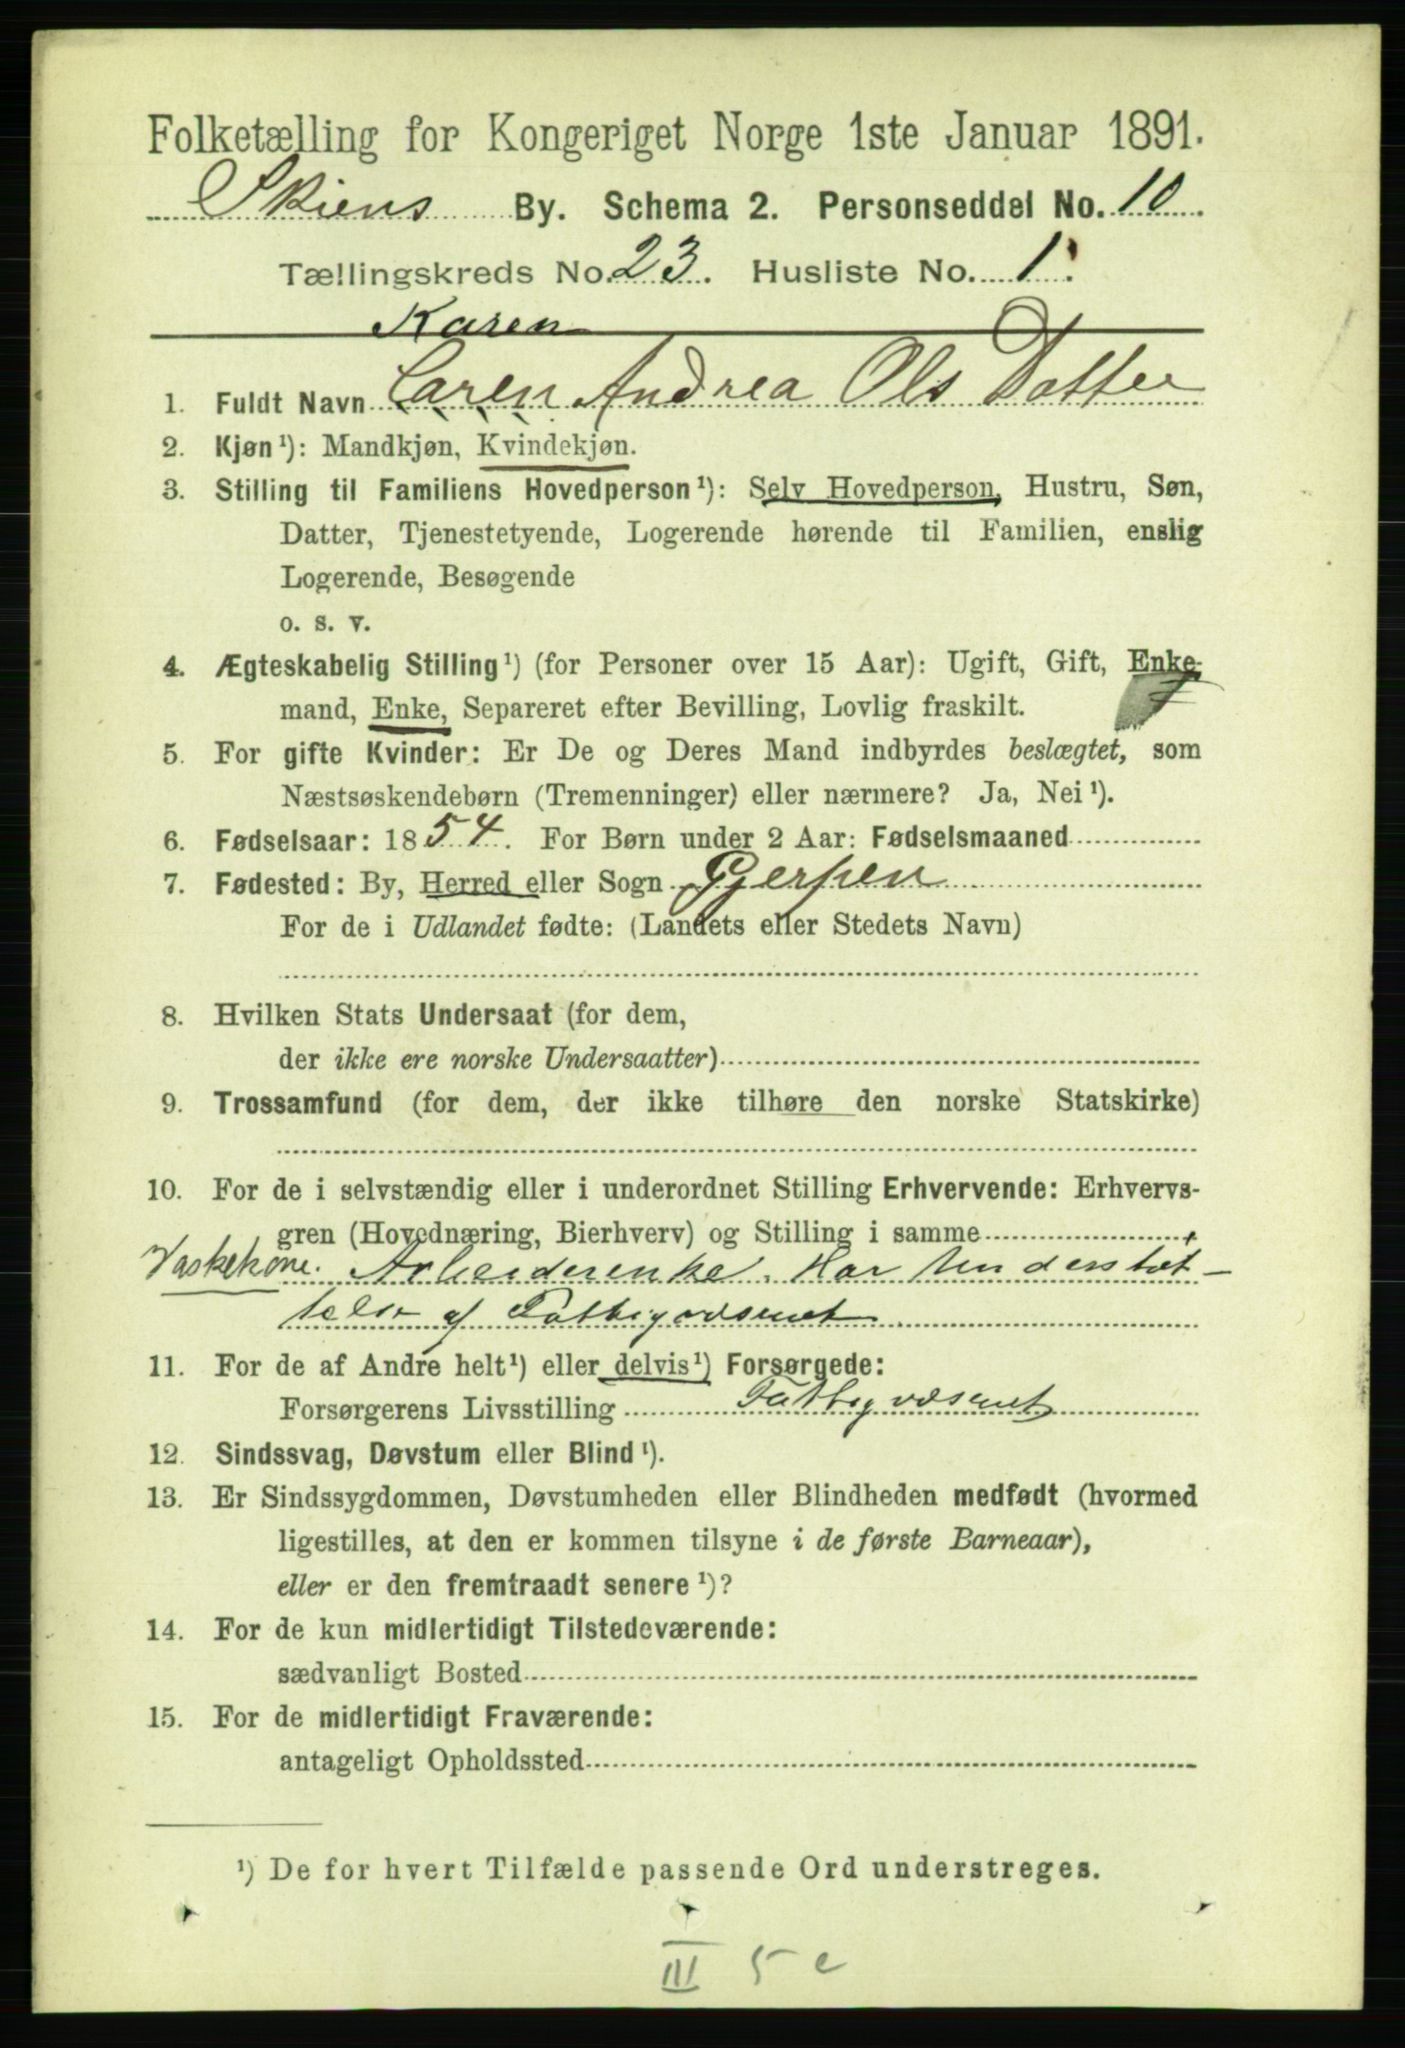 Folketælling for Kongeriget Norge 1ste Januar 1891.
Skiens By. Schema 2. Personseddel No. 10
Tællingskreds No. 23. Husliste No. 1.
Karen
1. Fuldt Navn Caren Andrea Ols Datter
2. Kjøn¹): Mandkjøn, Kvindekjøn.
3. Stilling til Familiens Hovedperson¹): Selv Hovedperson, Hustru, Søn,
Datter, Tjenestetyende, Logerende hørende til Familien, enslig
Logerende, Besøgende
o. s. v.
4. Ægteskabelig Stilling¹) (for Personer over 15 Aar): Ugift, Gift, Enke-
mand, Enke, Separeret efter Bevilling, Lovlig fraskilt.
5. For gifte Kvinder: Er De og Deres Mand indbyrdes beslægtet, som
Næstsøskendebørn (Tremenninger) eller nærmere? Ja, Nei¹).
6. Fødselsaar: 1854. For Børn under 2 Aar: Fødselsmaaned
7. Fødested: By, Herred eller Sogn Gjerpen
For de i Udlandet fødte: (Landets eller Stedets Navn)
8. Hvilken Stats Undersaat (for dem,
der ikke ere norske Undersaatter)
9. Trossamfund (for dem, der ikke tilhøre den norske Statskirke)
10. For de i selvstændig eller i underordnet Stilling Erhvervende: Erhvervs-
gren (Hovednæring, Bierhverv) og Stilling i samme
Vaskekone. Arbeiderenke. Har Understøt-
telse af Fattigvæsenet
11. For de af Andre helt¹) eller delvis¹) Forsørgede:
Forsørgerens Livsstilling Fattigvæsenet
12. Sindssvag, Døvstum eller Blind¹).
13. Er Sindssygdommen, Døvstumheden eller Blindheden medfødt (hvormed
ligestilles, at den er kommen tilsyne i de første Barneaar),
eller er den fremtraadt senere¹)?
14. For de kun midlertidigt Tilstedeværende:
sædvanligt Bosted
15. For de midlertidigt Fraværende:
antageligt Opholdssted
¹) De for hvert Tilfælde passende Ord understreges.
III 5 c